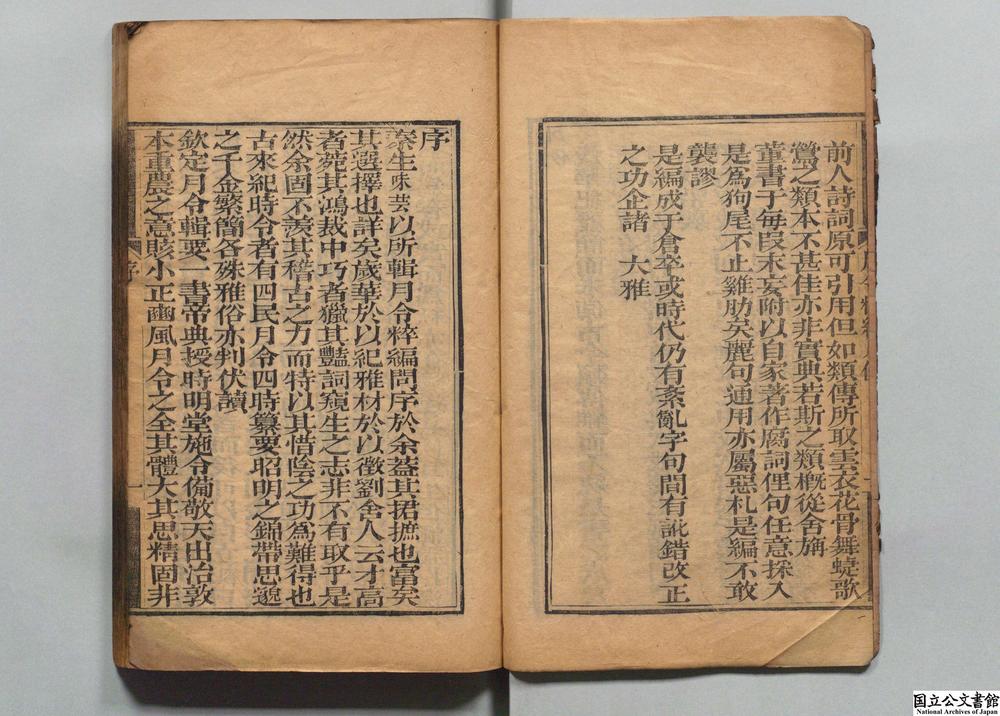 前人詩詞原可引用但如類傳所取雲衣花骨舞蜨歌
鶯之類本不甚佳亦非實典若斯之類概從舍旃
董書于每段末妄附以自家著作腐詞俚句任意採入
是爲狗尾不止雞肋矣麗句通用亦屬惡札是編不敢
襲謬
是編成于倉卒或時代仍有紊亂字句間有訛錯改正
之功企諸 大雅
序
秦生味芸以所輯月令粹編問序於余蓋其捃摭也富矣
其選擇也詳矣歲華於以紀雅材於以徵劉舍人云才高
者菀其鴻裁中巧者獵其豔詞窺生之志非不有取乎是
然余固不羨其稽古之力而特以其惜陰之功爲難得也
古來紀時令者有四民月令四時纂要昭明之錦帶思邈
之千金繁簡各殊雅俗亦判伏讀
欽定月令輯要一書帝典授時明堂施令備敬天出治敦
本重農之意賅小正豳風月令之全其體大其思精固非
序
一
国立公文書館
National Archives of Japan